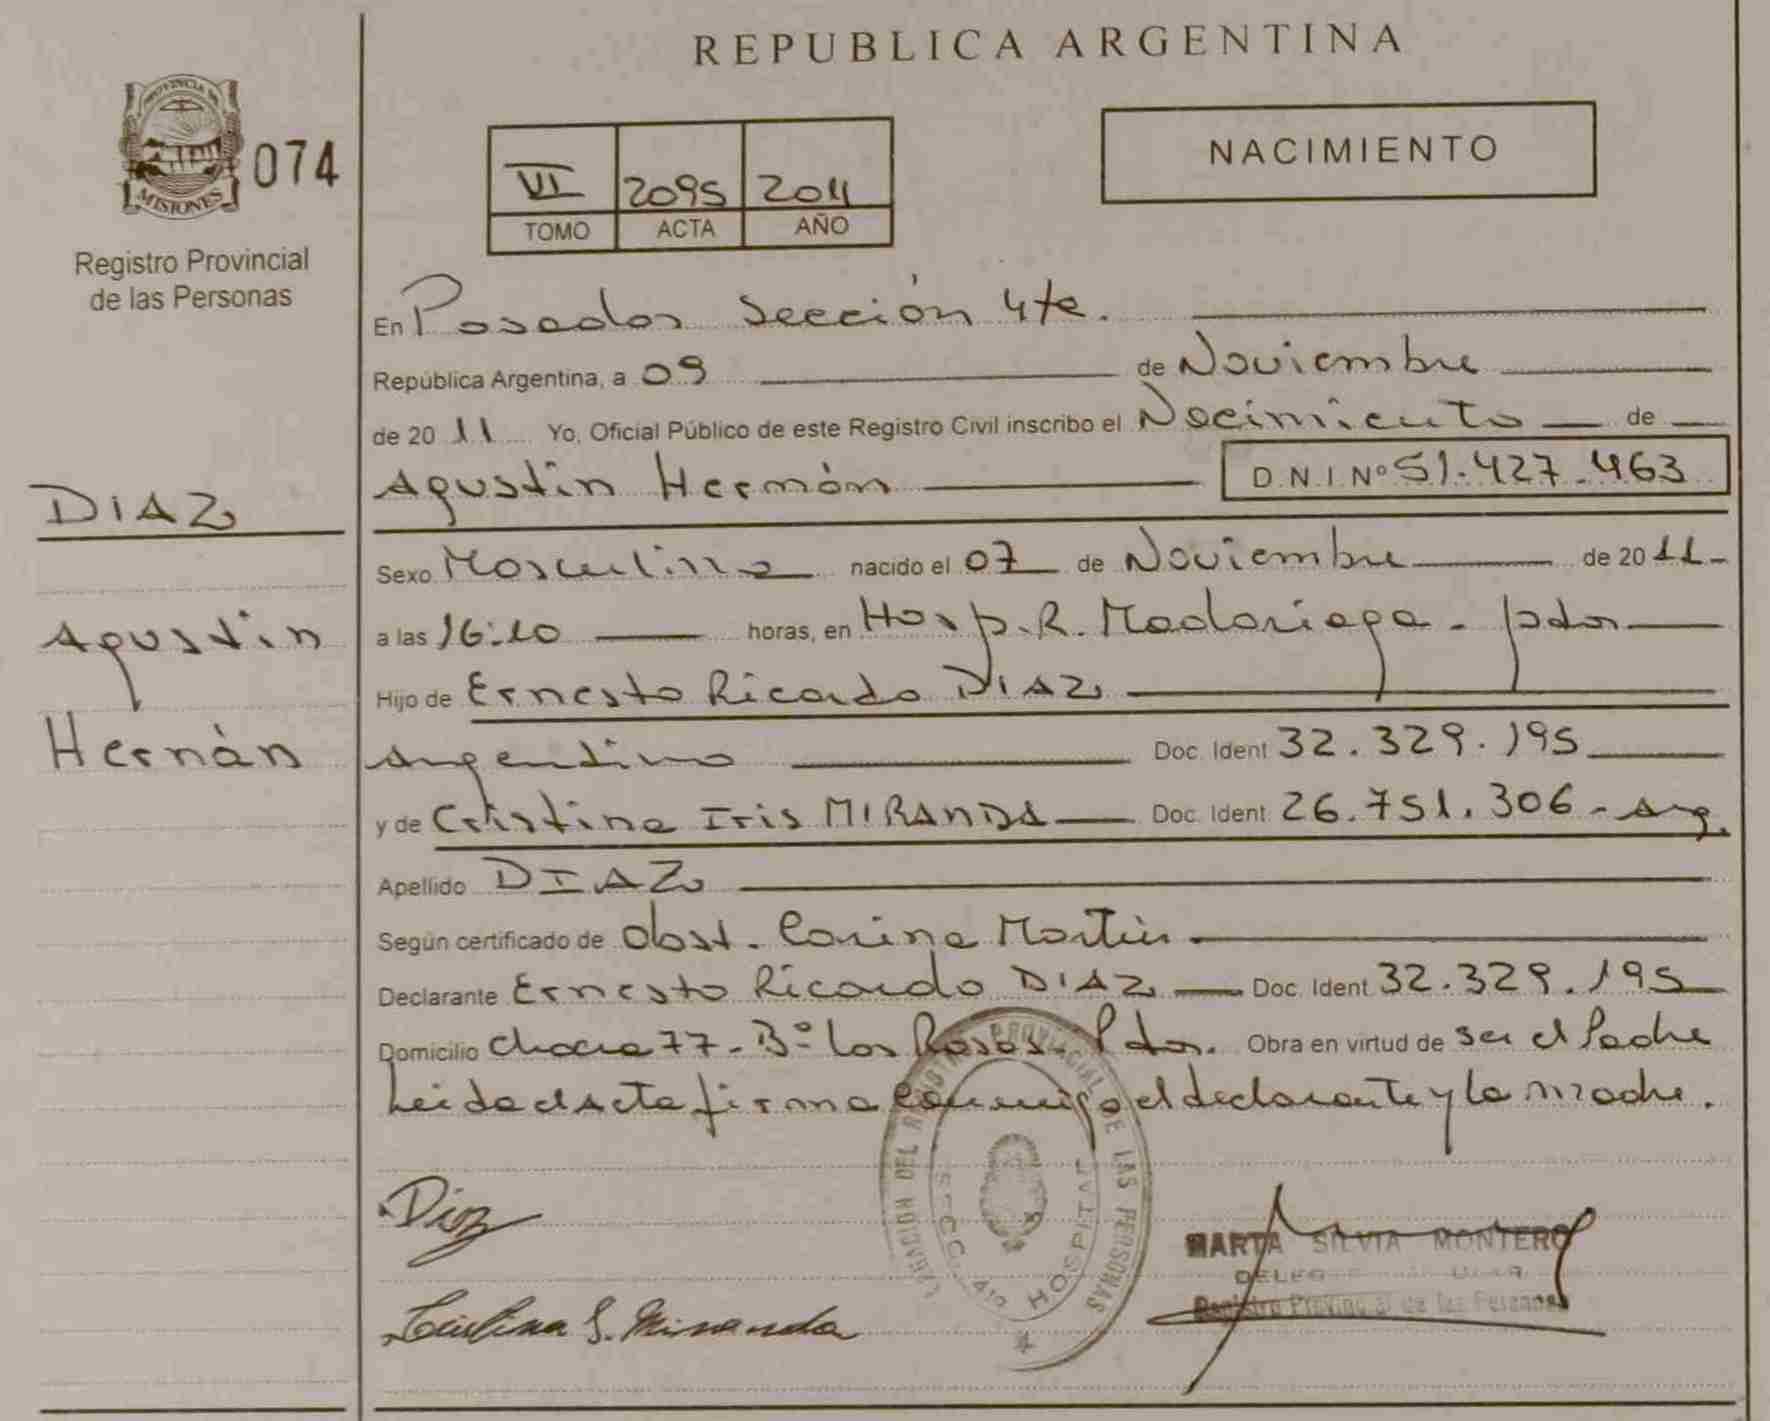 REPUBLICA ARGENTINA
PROVINCIA DE
MISIONES
074
Registro Provincial
de las Personas
VI 2095 2011
TOMO ACTA AÑO
NACIMIENTO
En Posadas Sección 4ta.
República Argentina, a 09 de Noviembre
de 2011 Yo, Oficial Público de este Registro Civil inscribo el Nacimiento de
Agustín Hernán D.N.I Nº 51.427.463
DIAZ
Agustín
Hernán
Sexo Masculino nacido el 07 de Noviembre de 2011-
a las 16:10 horas, en Hosp. R. Madariaga - pdas
Hijo de Ernesto Ricardo DIAZ
Argentino Doc. Ident 32.329.195
y de Cristina Iris MIRANDA Doc. Ident 26.751.306 - Arg.
Apellido DIAZ
Según certificado de Obst. Carina Martin
Declarante Ernesto Ricardo DIAZ Doc. Ident 32.329.195
Domicilio Chacra 77 - Bº Las Rosas - Pdas. Obra en virtud de ser el Padre
Leida el Acta firma conmigo el declarante y la madre.
DEL REGISTRO PROVINCIAL DE LAS PERSONAS
SECC. 4ta HOSPITAL
Diaz
Cristina I. Miranda
MARTA SILVIA MONTERO
Registro Provincial de las Personas